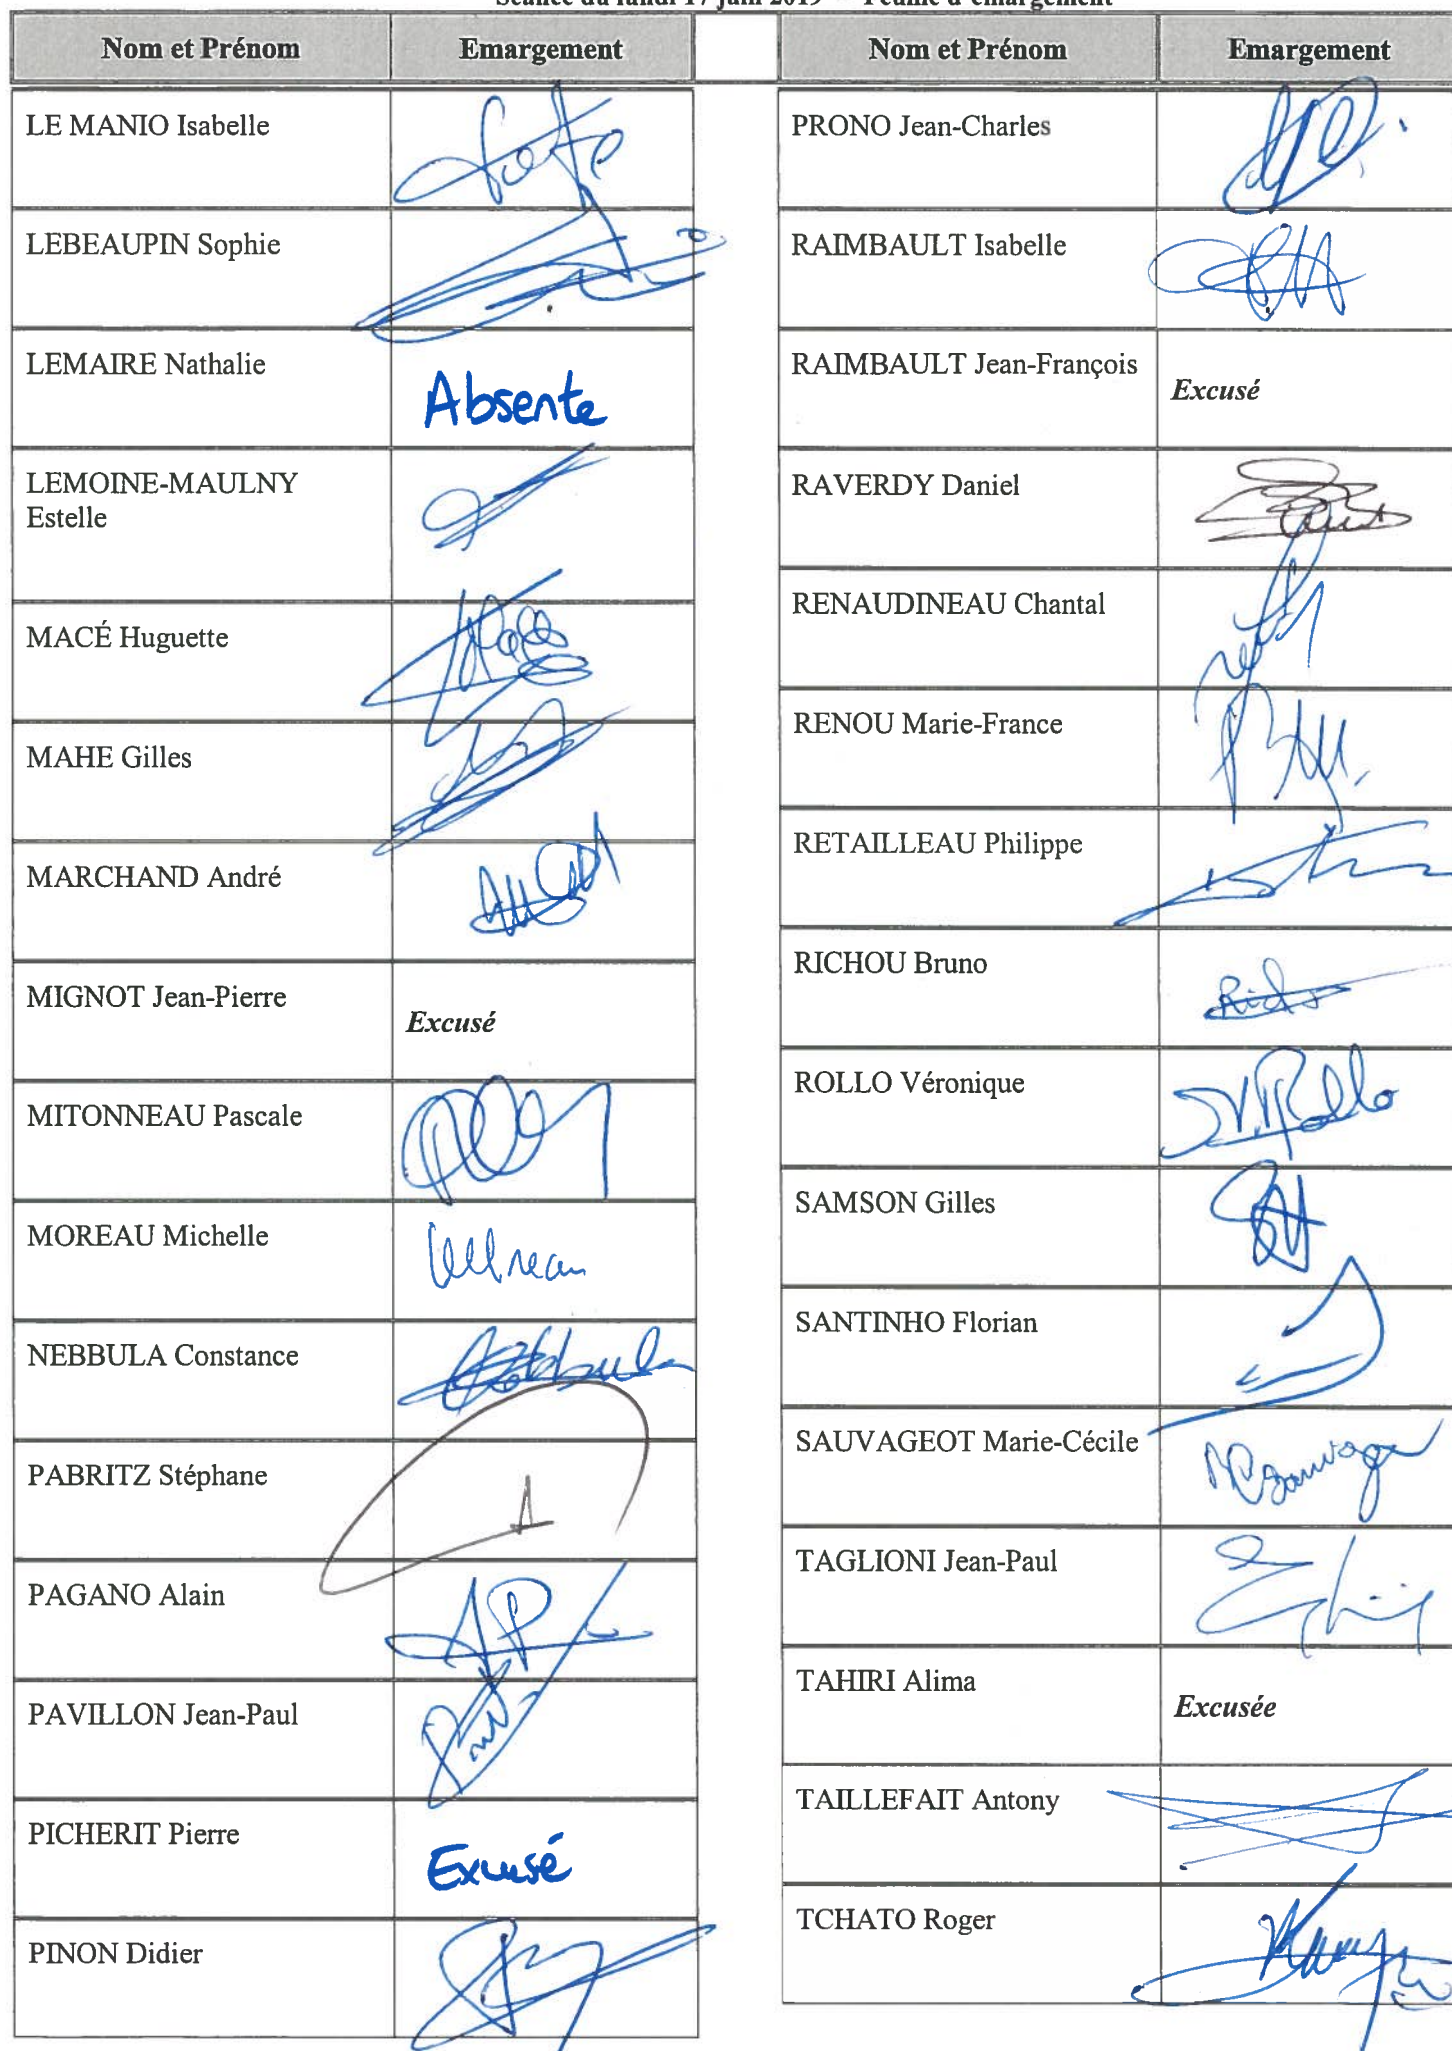 Séance du lundi 17 juin 2019 - Feuille d'émargement
Nom et Prénom Emargement
LE MANIO Isabelle
LEBEAUPIN Sophie
LEMAIRE Nathalie Absente
LEMOINE-MAULNY
Estelle
MACÉ Huguette
MAHE Gilles
MARCHAND André
MIGNOT Jean-Pierre Excusé
MITONNEAU Pascale
MOREAU Michelle
NEBBULA Constance
PABRITZ Stéphane
PAGANO Alain
PAVILLON Jean-Paul
PICHERIT Pierre Excusé
PINON Didier
Nom et Prénom Emargement
PRONO Jean-Charles
RAIMBAULT Isabelle
RAIMBAULT Jean-François Excusé
RAVERDY Daniel
RENAUDINEAU Chantal
RENOU Marie-France
RETAILLEAU Philippe
RICHOU Bruno
ROLLO Véronique V. Rollo
SAMSON Gilles
SANTINHO Florian
SAUVAGEOT Marie-Cécile
TAGLIONI Jean-Paul
TAHIRI Alima Excusée
TAILLEFAIT Antony
TCHATO Roger